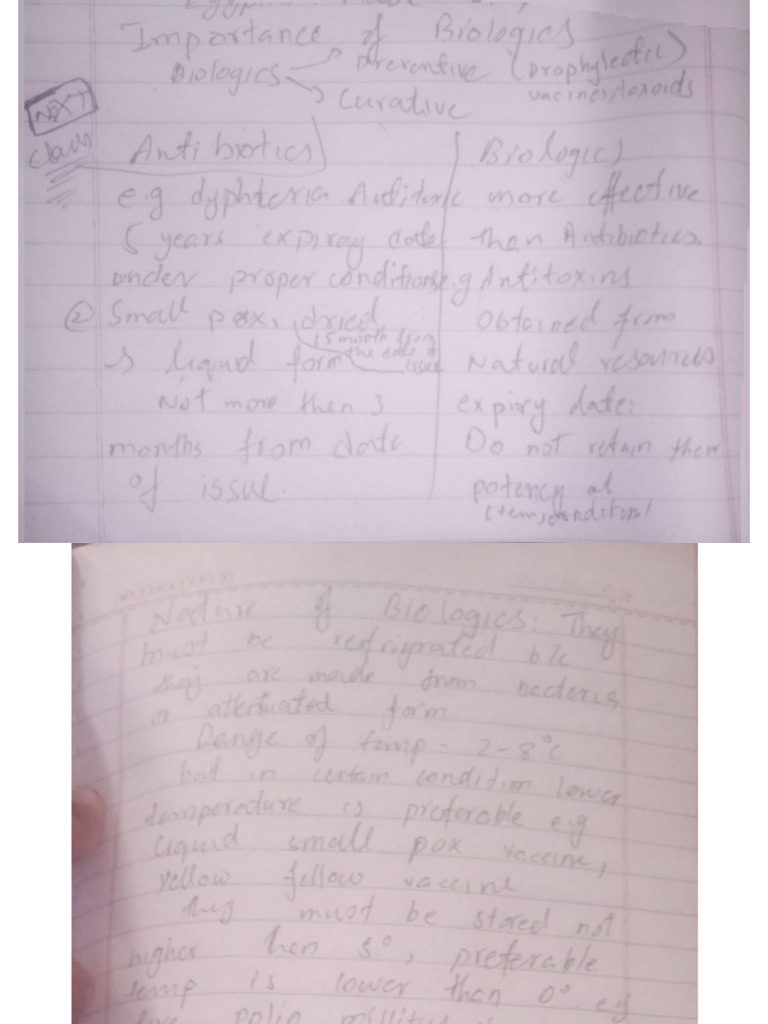 Importance of Biologics
Biologics → Preventive (prophylectic)
vaccines, toxoids
→ Curative
NEXT
Class
Antibiotics
Biologics
e.g dyphteria
more effective
5 years expiray date
than Antibiotics
under proper conditions
e.g Antitoxins
② Small pox, dried
Obtained from
15 month from
the date of
issue
→ liquid form
Natural resources
Not more then 3
expiry date:
months from date
Do not retain their
of issue.
potency at
Nature of Biologics: They
must be refrigrated b/c
they are made from bacteria
or attenuated form
Range of temp = 2-8°C
but in certain condition lower
temperature is preferable e.g
liquid small pox vaccine,
yellow fellow vaccine
they must be stored not
higher then 5°, preferable
temp is lower than 0° eg
live polio